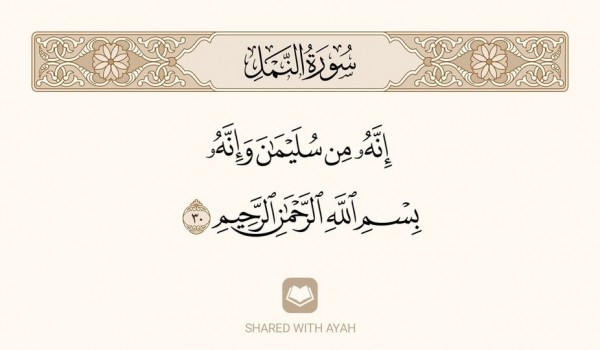 سُورَةُ النَّمْلِ
إِنَّهُۥ مِن سُلَيْمَٰنَ وَإِنَّهُۥ
بِسْمِ ٱللَّهِ ٱلرَّحْمَٰنِ ٱلرَّحِيمِ ٣٠
SHARED WITH AYAH